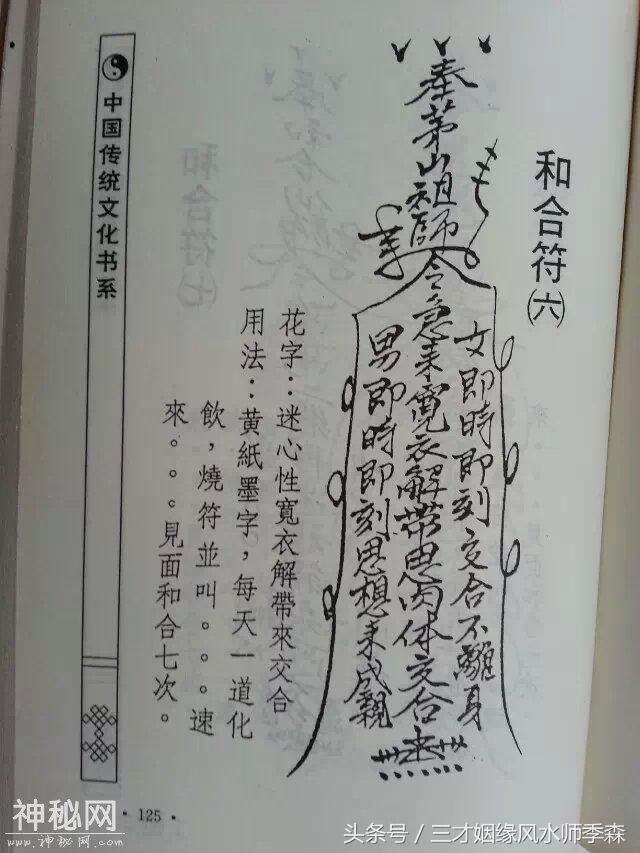 和合符(六)
奉茅山祖師令急來寬衣解帶思肉体交合
女即時即刻交合不離身
男即時即刻思想來成親
花字：迷心性寬衣解帶來交合
用法：黄紙墨字，每天一道化
飲，燒符並叫。。。速
來。。。見面和合七次。
中国传统文化书系
·125·
神秘网
www.shenmiw.com
头条号／三才姻缘风水师季森